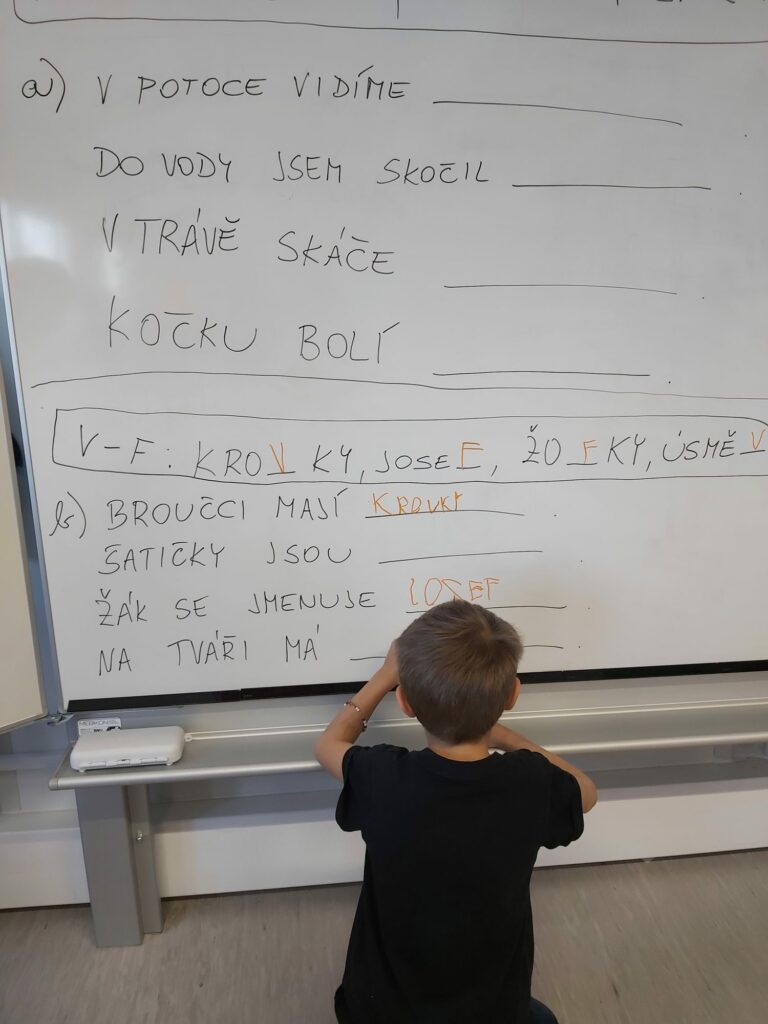 a) V POTOCE VIDÍME ___________
DO VODY JSEM SKOČIL ___________.
V TRÁVĚ SKÁČE ___________.
KOČKU BOLÍ ___________.
V-F: KROVKY, JOSEF, ŽOFKY, ÚSMĚV
b) BROUČCI MAJÍ KROVKY.
ŠATIČKY JSOU ___________.
ŽÁK SE JMENUJE IOSEF.
NA TVÁŘI MÁ ___________.